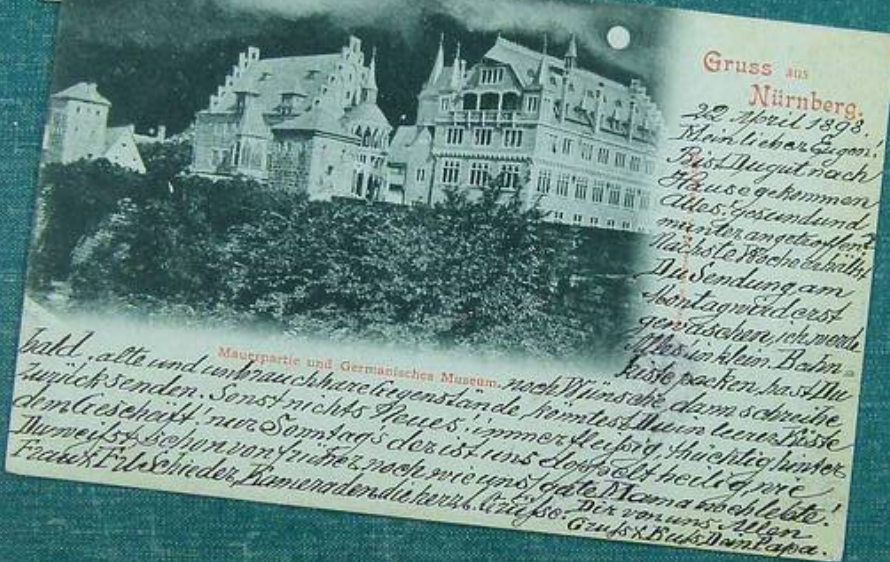 Gruss aus
Nürnberg.
22 April 1898.
Mein lieber Eugen!
Bist Du gut nach
Hause gekommen
Alles gesund und
munter angetroffen?
Nächste Woche erhältst
Du Sendung am
Montag wird erst
gewaschen, ich werde
Alles in klein. Bahn-
kiste packen, hast Du
noch Wünsche dann schreibe
Mauerpartie und Germanisches Museum.
bald. alte und unbrauchbare Gegenstände konntest Du in leerer Kiste
zurücksenden. Sonst nichts Neues, immer fleißig thüchtig hinter
dem Gescheift, nur Sonntags der ist uns doppelt heilig, wie
Du weißt schon von früher noch, wie uns gute Mama noch lebte!
Frau & Frl Schieder, Kameraden, die herzl. Grüße. Dir von uns Allen
Gruß & Kuß Dein Papa.